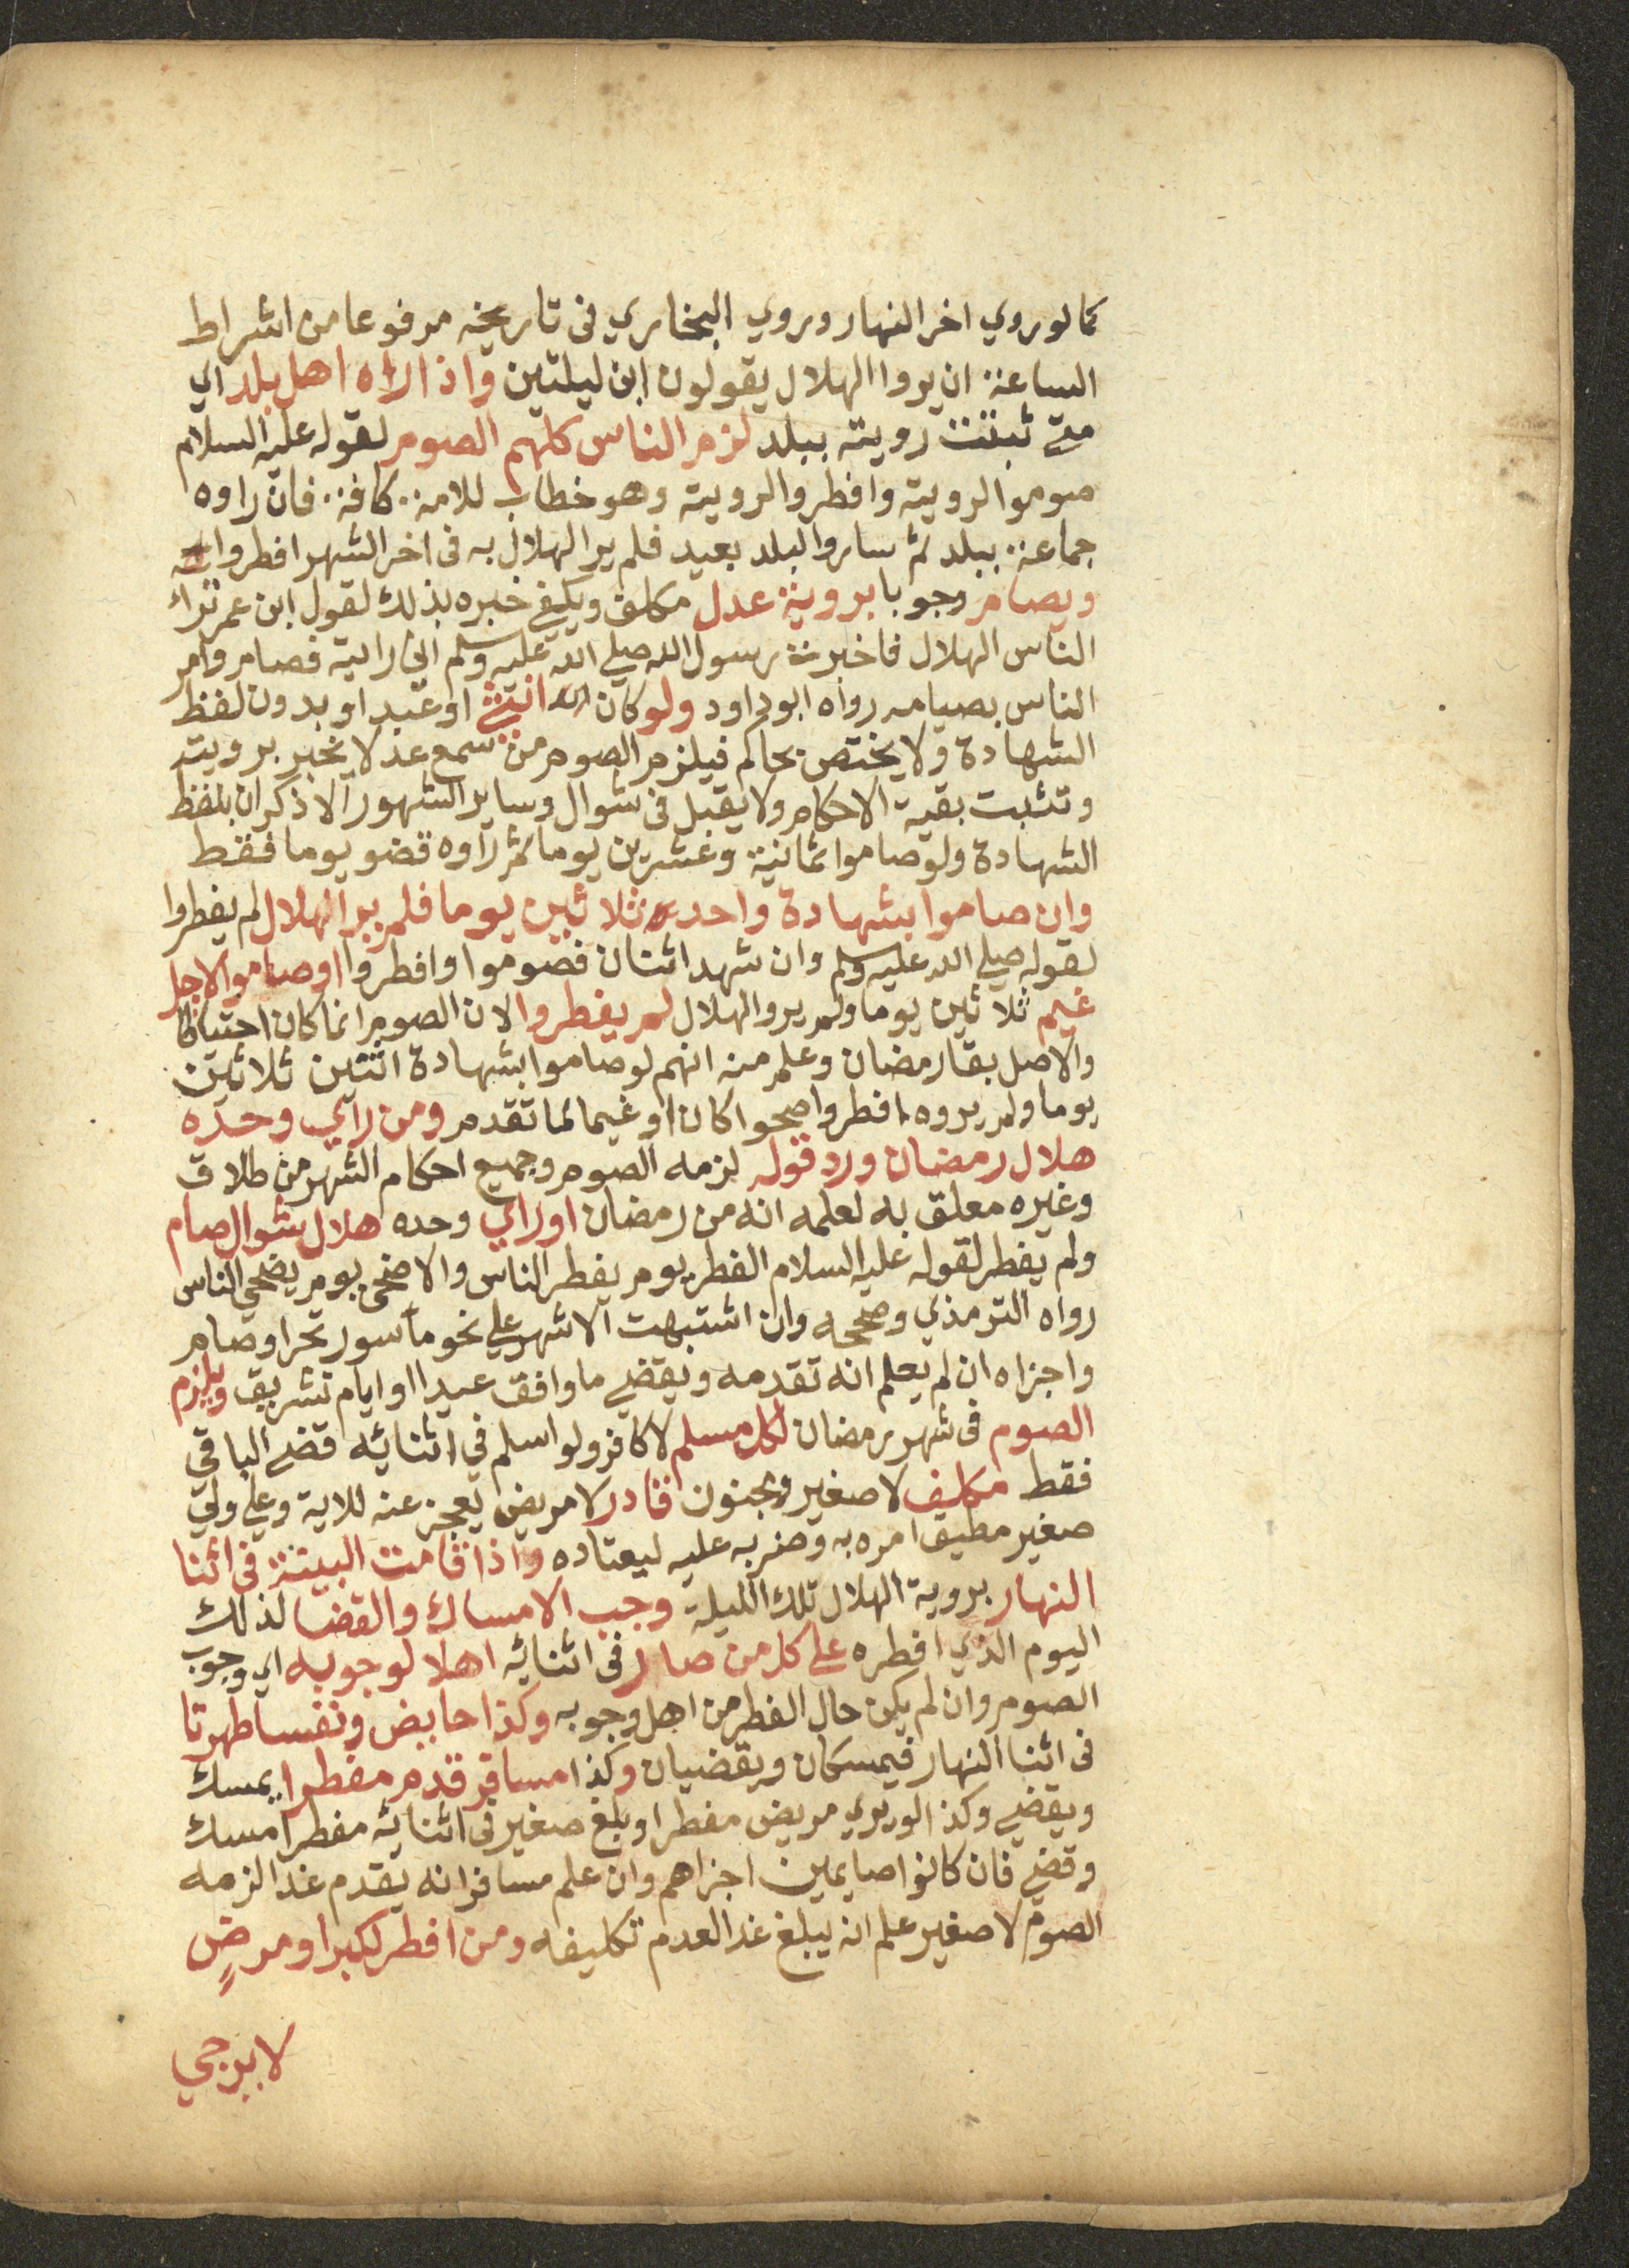 كما لو روي اخر النهار وروي البخاري فى تاريخه مرفوعا من اشراط
الساعة ان يروا الهلال يقولون ابن ليلتين واذا راه اهل بلد اي
متى ثبتت رويته ببلد لزم الناس كلهم الصوم لقوله عليه السلام
صوموا لرويته وافطروا لرويته وهو خطاب للامة كافة فان راوه
جماعة ببلد ثم ساروا لبلد بعيد فلم ير الهلال به فى اخر الشهر افطروا
ويصام وجوبا بروية عدل مكلف ويكفي خبره بذلك لقول ابن عمر تراءا
الناس الهلال فاخبرت رسول الله صلي الله عليه وسلم اني رايته فصام وامر
الناس بصيامه رواه ابو داود ولو كان انثى او عبد او بدون لفظ
الشهادة ولا يختص بحاكم فيلزم الصوم من سمع عدلا يخبر برويته
وتثبت بقية الاحكام ولا يقبل فى شوال وساير الشهور الا ذكران بلفظ
الشهادة ولو صاموا ثمانية وعشرين يوما ثم راوه قضو يوما فقط
وان صاموا بشهادة واحد ثلاثين يوما فلم ير الهلال لم يفطروا
لقوله صلي الله عليه وسلم وان شهد اثنان فصوموا وافطروا او صاموا لاجل
غيم ثلاثين يوما ولم يروا الهلال لم يفطروا لان الصوم انما كان احتياطا
والاصل بقا رمضان وعلم منه انهم لو صاموا بشهادة اثنين ثلاثين
يوما ولم يروه افطروا صحوا كان او غيما لما تقدم ومن راي وحده
هلال رمضان ورد قوله لزمه الصوم وجميع احكام الشهر من طلاق
وغيره معلق به لعلمه انه من رمضان او راي وحده هلال شوال صام
ولم يفطر لقوله عليه السلام الفطر يوم يفطر الناس والاضحى يوم يضحي الناس
رواه الترمذي وصححه وان اشتبهت الاشهر علي نحو ماسور تحرا وصام
واجزاه ان لم يعلم انه تقدمه ويقضي ما وافق عيدا او ايام تشريق ويلزم
الصوم فى شهر رمضان لكل مسلم لا كافر ولو اسلم في اثنائه قضى الباقي
فقط مكلف لا صغير ومجنون قادر لا مريض يعجز عنه للاية وعلي ولي
صغير مطيق امره به وضربه عليه ليعتاده واذا قامت البينة فى اثنا
النهار بروية الهلال تلك الليلة وجب الامساك والقضا لذلك
اليوم الذي افطره على كل من صار فى اثنائه اهلا لوجوبه اي وجوب
الصوم وان لم يكن حال الفطر من اهل وجوبه وكذا حايض ونفسا طهرتا
فى اثنا النهار فيمسكان ويقضيان وكذا مسافر قدم مفطرا يمسك
ويقضي وكذا لو بري مريض مفطرا او بلغ صغير فى اثنائه مفطرا امسك
وقضى فان كانوا صايمين اجزاهم وان علم مسافر انه يقدم غدا لزمه
الصوم لا صغير علم انه يبلغ غدا لعدم تكليفه ومن افطر لكبر او مرض
لا يرجي